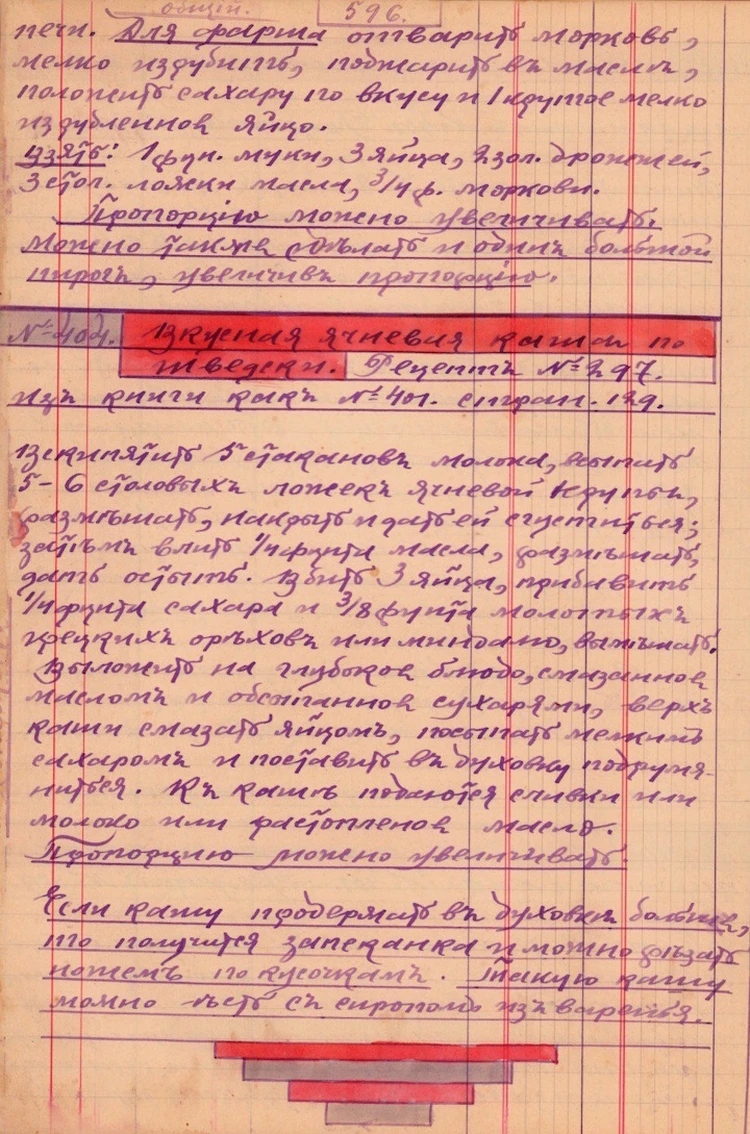 общій.
596.
печи. Для фарша отварить морковь,
мелко изрубить, поджарить въ маслѣ,
положить сахару по вкусу и 1 крутое мелко
изрубленное яйцо.
Взять: 1 фун. муки, 3 яйца, 2 зол. дрожжей,
3 стол. ложки масла, 3/4 ф. моркови.
Пропорцію можно увеличивать.
Можно также сдѣлать и одинъ большой
пирогъ, увеличивъ пропорцію.
№ 404. Вкусная ячневая каша по
шведски. Рецептъ № 297.
изъ книги какъ № 401. стран. 129.
Вскипятить 5 стакановъ молока, всыпать
5-6 столовыхъ ложекъ ячневой крупы,
размѣшать, накрыть и дать ей сгуститься;
затѣмъ влить 1/4 фунта масла, размѣшать,
дать остыть. Взбить 3 яйца, прибавить
1/4 фунта сахара и 3/8 фунта молотыхъ
грецкихъ орѣховъ или миндалю, вымѣшать.
Выложить на глубокое блюдо, смазанное
масломъ и обсыпанное сухарями, верхъ
каши смазать яйцомъ, посыпать мелкимъ
сахаромъ и поставить въ духовку подрумя-
ниться. Къ кашѣ подаются сливки или
молоко или растопленое масло.
Пропорцію можно увеличивать.
Если кашу продержать въ духовкѣ больше,
то получится запеканка и можно рѣзать
ножемъ по кусочкамъ. Такую кашу
можно ѣсть съ сиропомъ изъ варенья.